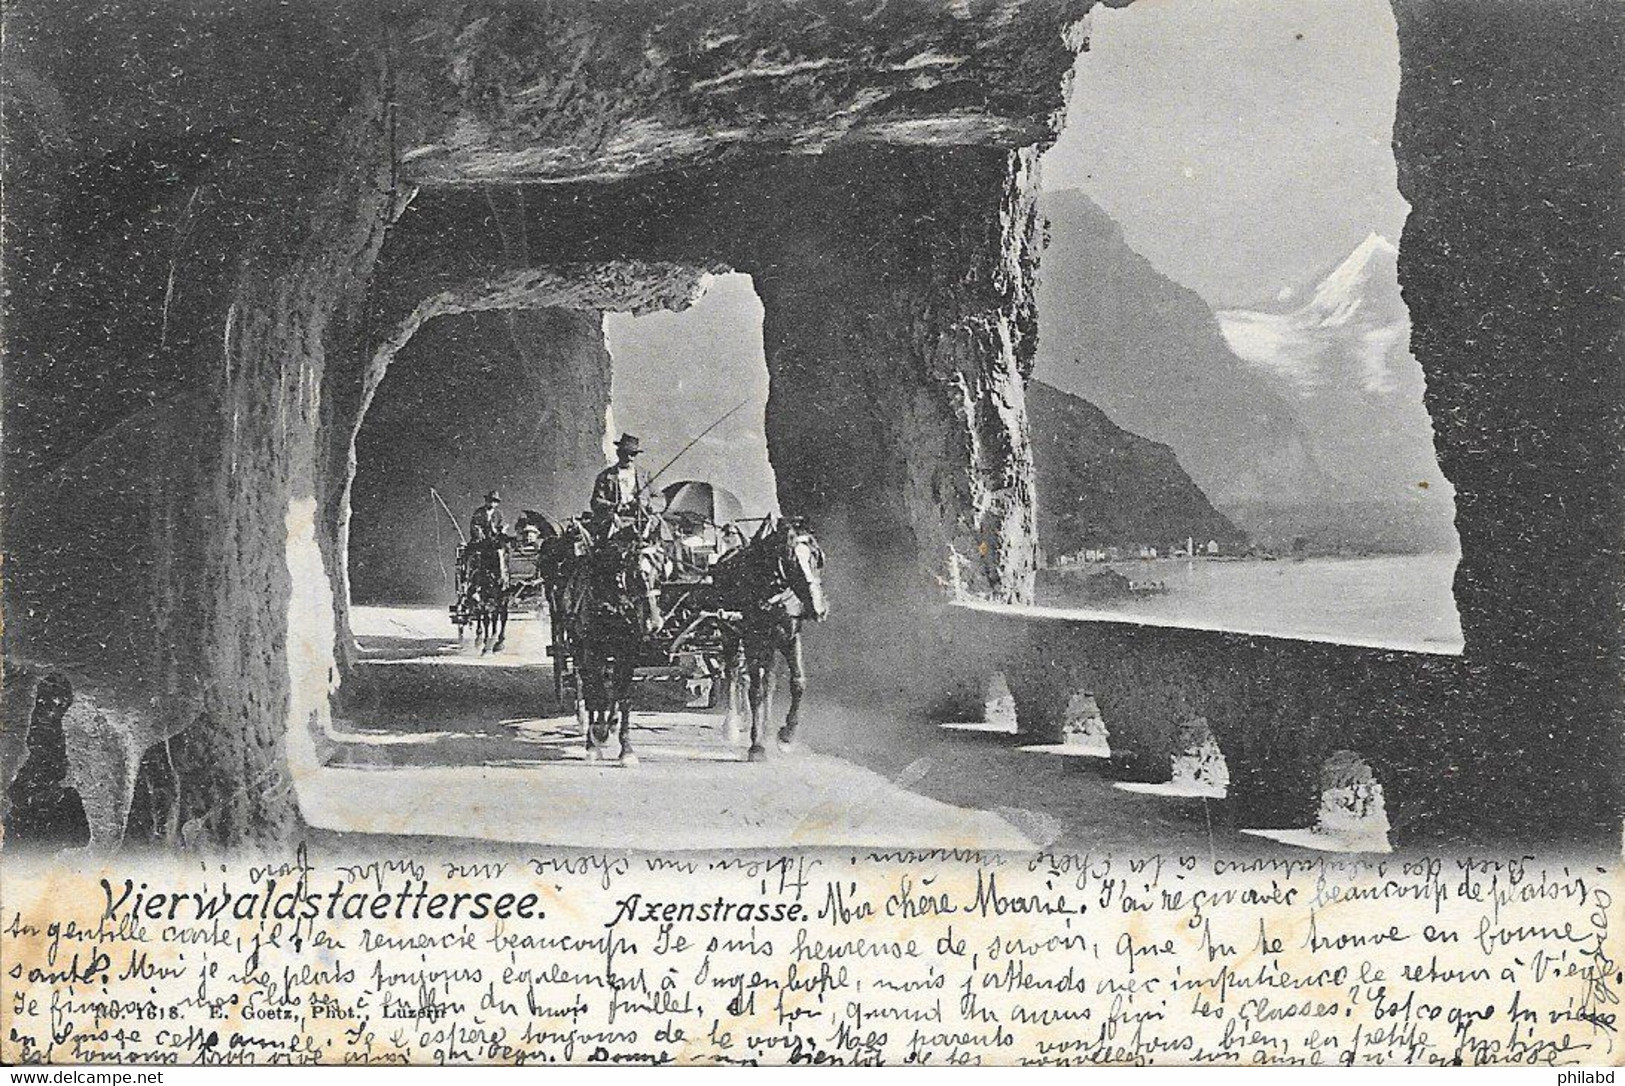 Bien des salutations à ta chère maman. Adieu ma chère une autre fois
Vierwaldstaettersee. Axenstrasse. Ma chère Marie. J'ai reçu avec beaucoup de plaisir
ta gentille carte, je t'en remercie beaucoup Je suis heureuse de savoir, que tu te trouve en bonne
santé. Moi je me plais toujours également à Ingenbohl, mais j'attends avec impatience le retour à Viège.
Je finirai mes classes à la fin du mois juillet. Et toi, quand tu auras fini tes classes? Est ce que tu viens
No. 1618. E. Goetz, Phot., Luzern
en Suisse cette année. Je l'espère toujours de te voir. Mes parents vont tous bien, la petite Justine
est toujours trop vive ainsi qu'Oega. Donne-moi bientôt de tes nouvelles. ton amie qui t'embrasse
Agnès
delcampe.net
philabd